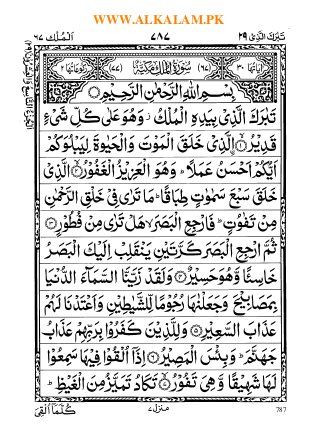 WWW.ALKALAM.PK
تَبٰرَكَ الَّذِیْ ٢٩ ٧٨٧ اَلْمُلْك ٦٧
اٰیَاتُهَا ٣٠ (٦٧) سُوْرَةُ الْمُلْكِ مَكِّیَّةٌ (٧٧) رُكُوْعَاتُهَا ٢
بِسْمِ اللّٰهِ الرَّحْمٰنِ الرَّحِیْمِ
تَبٰرَكَ الَّذِیْ بِیَدِهِ الْمُلْكُ وَهُوَ عَلٰی كُلِّ شَیْءٍ
قَدِیْرُ ۝١ الَّذِیْ خَلَقَ الْمَوْتَ وَالْحَیٰوةَ لِیَبْلُوَكُمْ
اَیُّكُمْ اَحْسَنُ عَمَلًا ؕ وَهُوَ الْعَزِیْزُ الْغَفُوْرُ ۝٢ الَّذِیْ
خَلَقَ سَبْعَ سَمٰوٰتٍ طِبَاقًا ؕ مَا تَرٰی فِیْ خَلْقِ الرَّحْمٰنِ
مِنْ تَفٰوُتٍ ؕ فَارْجِعِ الْبَصَرَ هَلْ تَرٰی مِنْ فُطُوْرٍ ۝٣
ثُمَّ ارْجِعِ الْبَصَرَ كَرَّتَیْنِ یَنْقَلِبْ اِلَیْكَ الْبَصَرُ
خَاسِئًا وَّهُوَ حَسِیْرٌ ۝٤ وَلَقَدْ زَیَّنَّا السَّمَآءَ الدُّنْیَا
بِمَصَابِیْحَ وَجَعَلْنٰهَا رُجُوْمًا لِّلشَّیٰطِیْنِ وَاَعْتَدْنَا لَهُمْ
عَذَابَ السَّعِیْرِ ۝٥ وَلِلَّذِیْنَ كَفَرُوْا بِرَبِّهِمْ عَذَابُ
جَهَنَّمَ ؕ وَبِئْسَ الْمَصِیْرُ ۝٦ اِذَاۤ اُلْقُوْا فِیْهَا سَمِعُوْا
لَهَا شَهِیْقًا وَّهِیَ تَفُوْرُ ۝٧ تَكَادُ تَمَیَّزُ مِنَ الْغَیْظِ ؕ
منزل ٧ كُلَّمَاۤ اُلْقِیَ
787